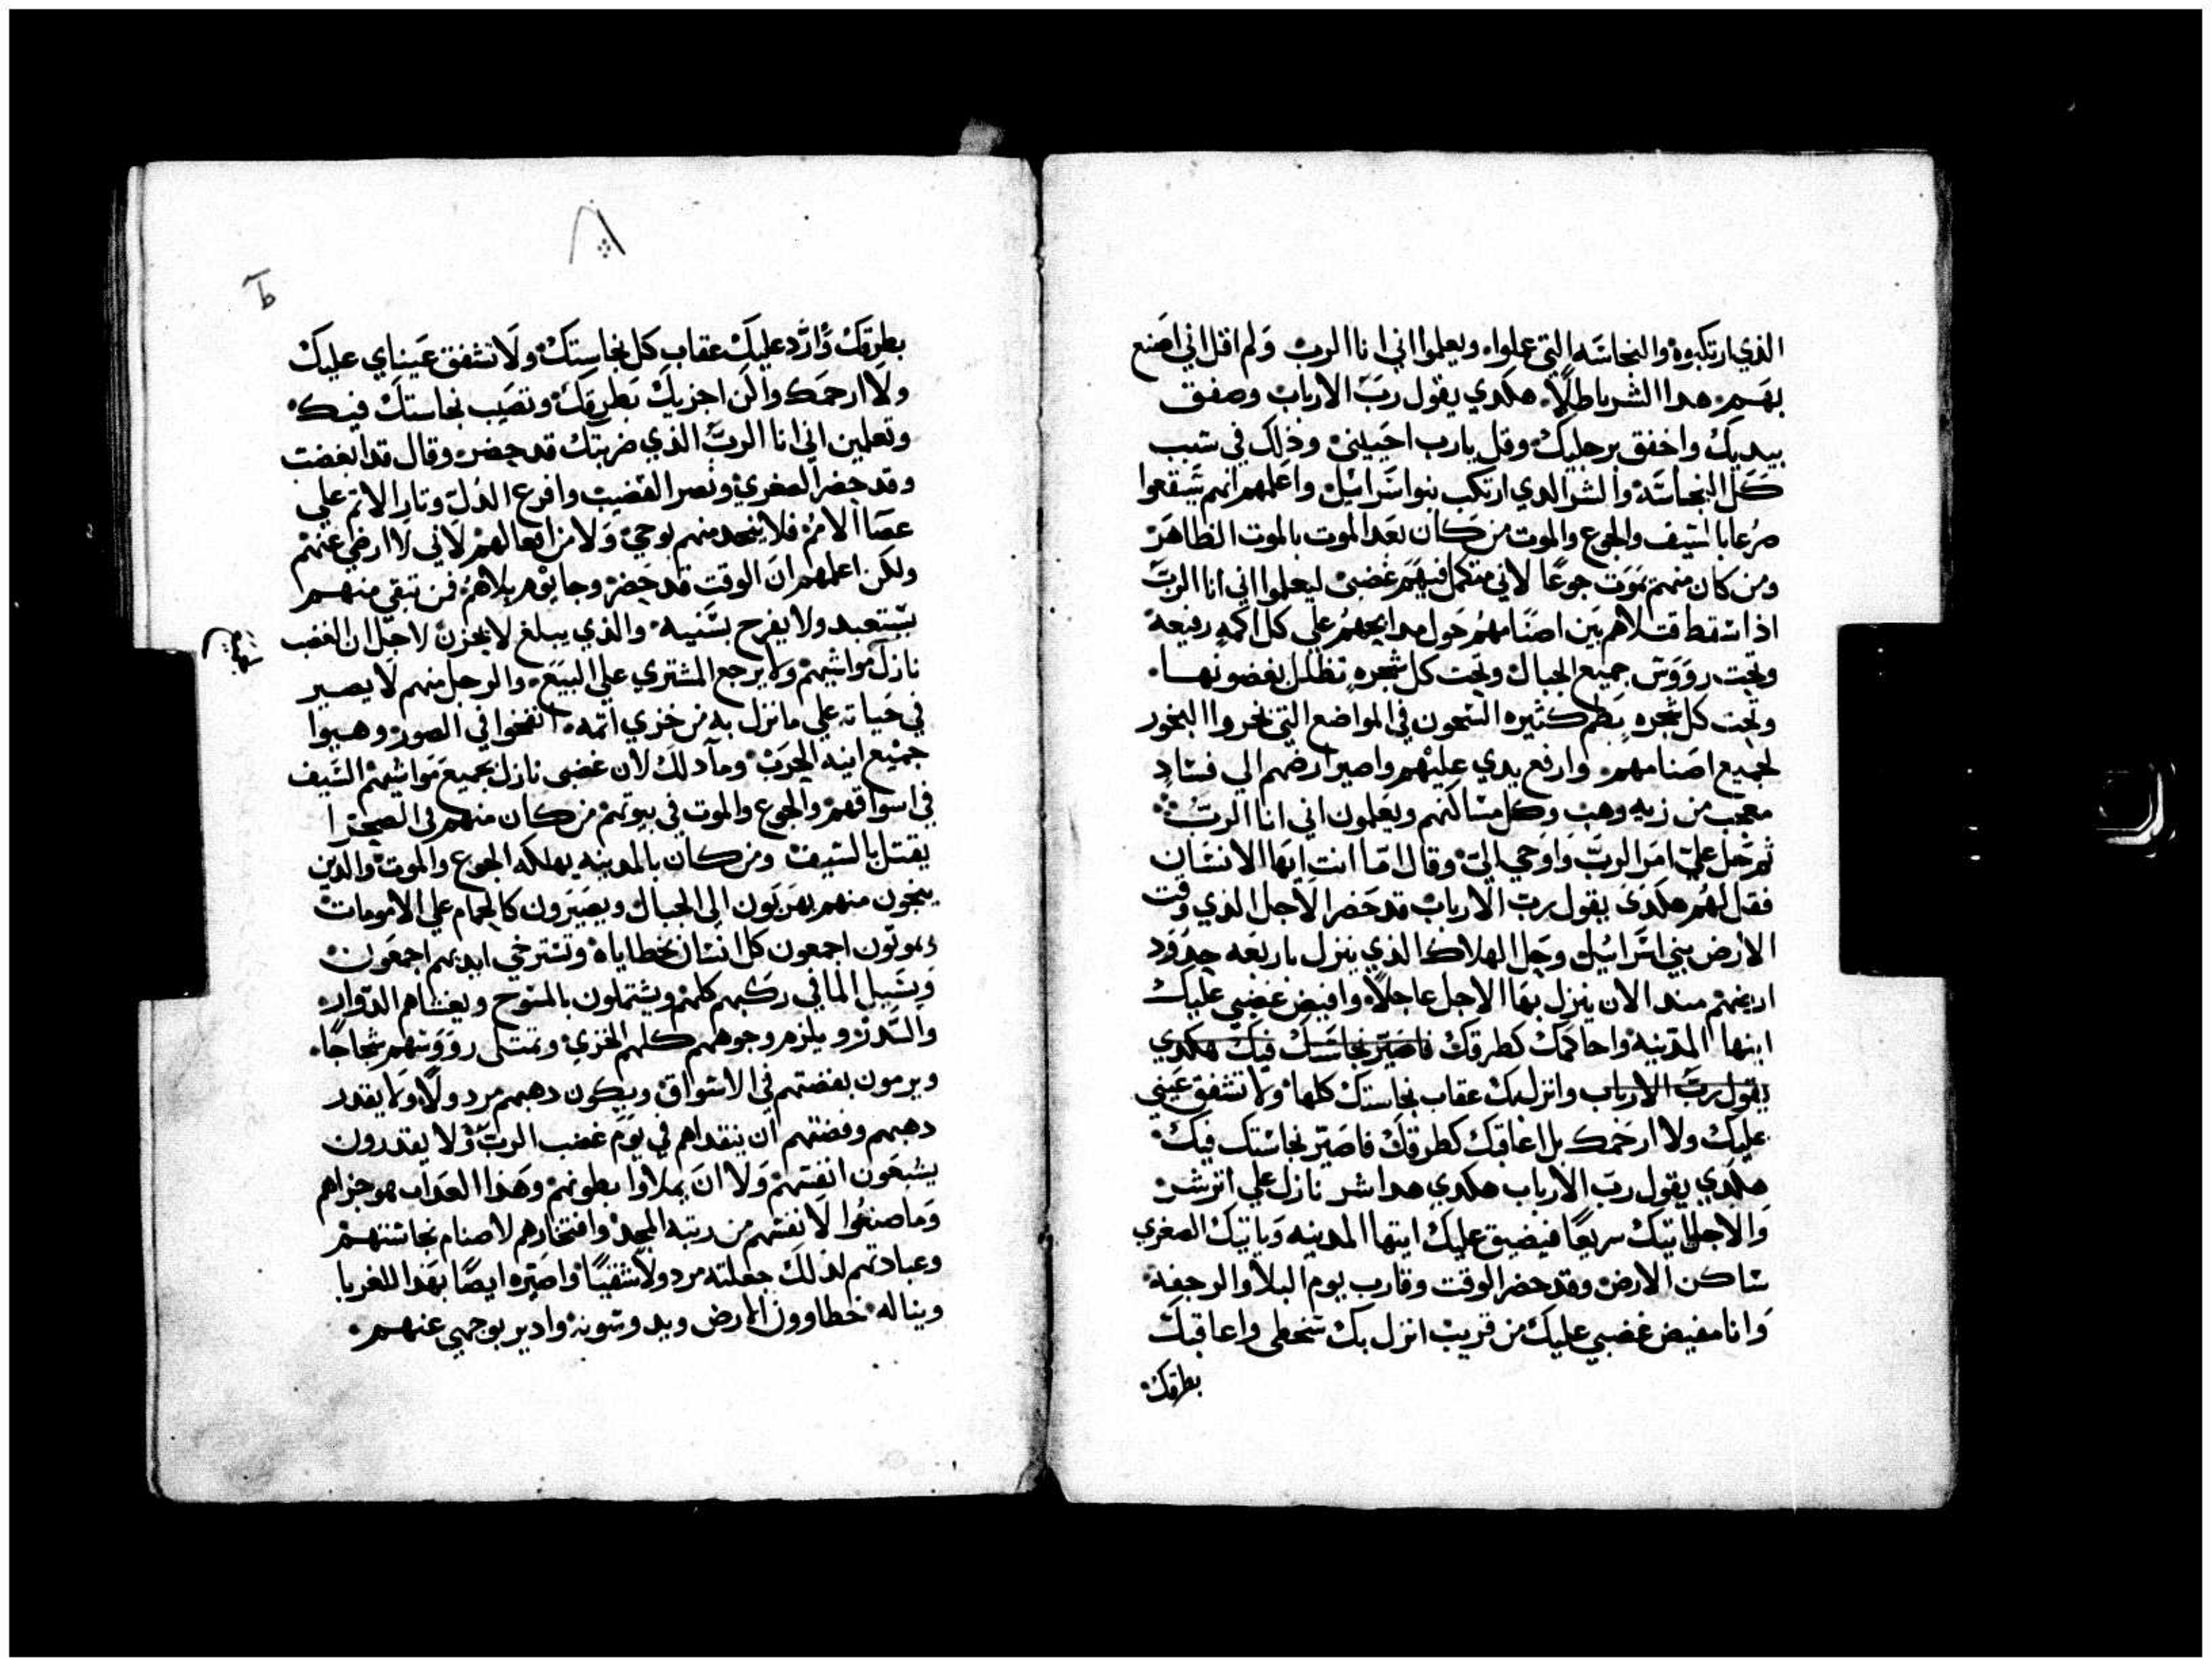 الذي ارتكبوه والنجاسه التي عملواه ويعلموا اني انا الرب ولم اقل اني اصنع
بهم هدا الشر باطلاً هكدي يقول رب الارباب وصفق
بيديك واخفق برجليك وقل يارب احيبني وذلك في سبب
كل النجاسه والشر الدي ارتكب بنوا سراييل واعلمهم انهم سيقعوا
صرعا بالسيف والجوع والموت من كان بعد الموت بالموت الظاهر
ومن كان منهم يموت جوعا لاني متكمل فيهم غضبي ليعلموا اني انا الرب
اذا سقطا قتلاهم بين اصنامهم حول مدابحهم علي كل اكمه رفيعه
وتحت رووس جميع الجبال وتحت كل شجره تظلل بغصونها
وتحت كل شجره بطم كثيره السحون في المواضع التي بخروا البخور
لجميع اصنامهم وارفع يدي عليهم واصير ارضهم الي فساد
معجب من زيه وهب وكل مساكنهم ويعلمون اني انا الرب
ثم حل علي امر الرب واوحي الي وقال اما انت ايها الانسان
فقل لهم هكدي يقول رب الارباب قد حضر الاجل الذي وقت
الارض بني اسراييل وحل الهلاك الذي ينزل باربعه حدود
ارضهم مند الان ينزل بها الاجل عاجلاً وافيض غضبي عليك
ايتها المدينه واحاكمك كطرقك فاصير نجاستك فيك هكدي
يقول رب الارباب وانزل بك عقاب نجاستك كلها ولا تشفق عيني
عليك ولا ارحمك بل اعاقبك كطرقك فاصير نجاستك فيك
هكدي يقول رب الارباب هكدي هدا شر نازل علي اثر شر
والاجل ياتيك سريعا فيضيق عليك ايتها المدينه وياتيك الصغري
ساكن الارض وقد حضر الوقت وقارب يوم البلا والرجفه
وانا مفيض غضبي عليك من قريب انزل بك سخطي واعاقبك
بطرقك
٨
بطرقك وارد عليك عقاب كل نجاستك ولا تشفق عيناي عليك
ولا ارحمك والكن اجزيك بطرقك وتصيب نجاستك فيك
وتعلمين اني انا الرب الذي ضربتك قد حضر وقال قد ابغضت
وقد حضر الصغري ونصر القضيب وافرع الذل وتار الاثم علي
عصا الامر فلا ينحد منهم بوحي ولا من افعالهم لاني لا ارضي عنهم
ولكن اعلمهم ان الوقت قد حضر وجا يوم بلاهم فمن تبقي منهم
يستعبد ولا يفرح بسنيه والذي يبلغ لا يحزن لاجل ان الغضب
نازل مواشيهم ولا يرجع المشتري علي البيع والرجل منهم لا يصير
في حياته علي ما نزل به من خزي اتمه انفخوا في الصور وهيوا
جميع انيه الحرب وما دلك لان غضبي نازل بجميع مواشيهم السيف
في اسواقهم والجوع والموت في بيوتهم من كان منهم في الصحرا
يقتل بالسيف ومن كان بالمدينه يهلكه الجوع والموت والدين
ينجون منهم يهربون الي الجبال ويصيرون كالحمام علي الامومات
ويموتون اجمعون كل انسان بخطاياه وتسترخي ايديهم اجمعون
ويسيل الما في ركبهم كلهم ويشتملون بالمسوح ويغشاهم الدوار
والسدر ويلزم وجوههم كلهم الخزي وتمتلي رووسهم شجاجا
ويرمون بفضتهم في الاسواق ويكون دهبهم مردولاً ولا يقدر
دهبهم وفضتهم ان ينقداهم في يوم غضب الرب ولا يقدرون
يشبعون انفسهم ولا ان يملاوا بطونهم وهذا العداب هو جزاهم
وما صنعوا لانفسهم من رتبه المجد وافتخارهم لاصنام نجاستهم
وعبادتهم لدلك جعلته مردولا شقيا واصيره ايضا بهدا للغربا
ويناله خطاوون الارض ويدوسونه وادير بوجهي عنهم